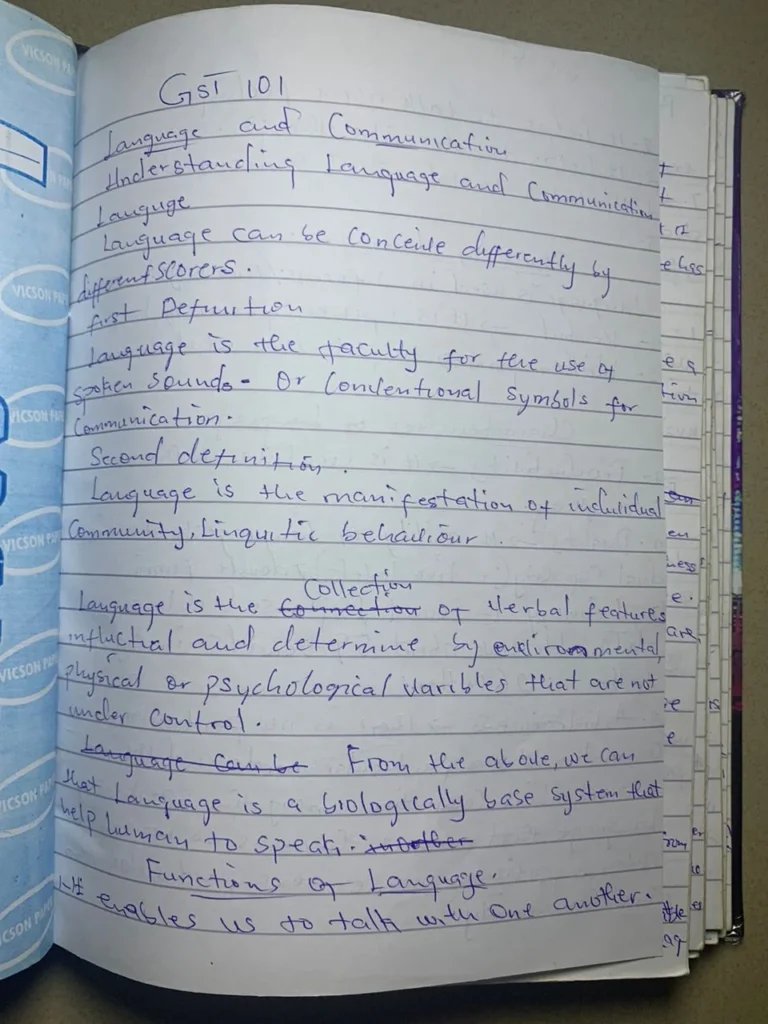 GST 101
Language and Communication
Understanding Language and Communication
Languge
Language can be Conceive differently by
different Scorers.
first Definition
Language is the faculty for the use of
spoken sounds- Or Conventional Symbols for
Communication.
Second definition.
Language is the manifestation of individual
Community, Linquitic behaviour.
Collection
Language is the Connection of Verbal features
influctial and determine by environmental,
physical or psychological varibles that are not
under control.
Language Can be From the above, we can
that Language is a biologically base system that
help human to speak. inother
Functions of Language.
1-It enables us to talk with One another.
VICSON PA
VICSON PA
VICSON PA
VICSON PA
VICSON PA
VICSON P
CSON PAPE